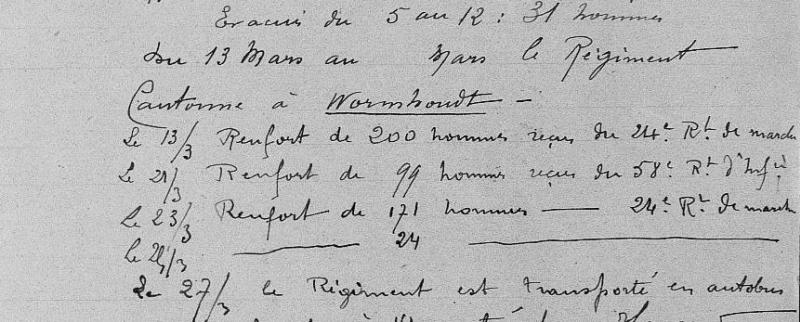 Evacués du 5 au 12 : 31 hommes
Du 13 Mars au Mars le Régiment
Cantonne à Wormhoudt —
Le 13/3 Renfort de 200 hommes reçus du 24e Rt. de marche
Le 21/3 Renfort de 99 hommes reçus du 58e Rt d'Infie
Le 23/3 Renfort de 171 hommes — 24e Rt. de marche
Le 25/3 — 24 —
Le 27/3 le Régiment est transporté en autobus